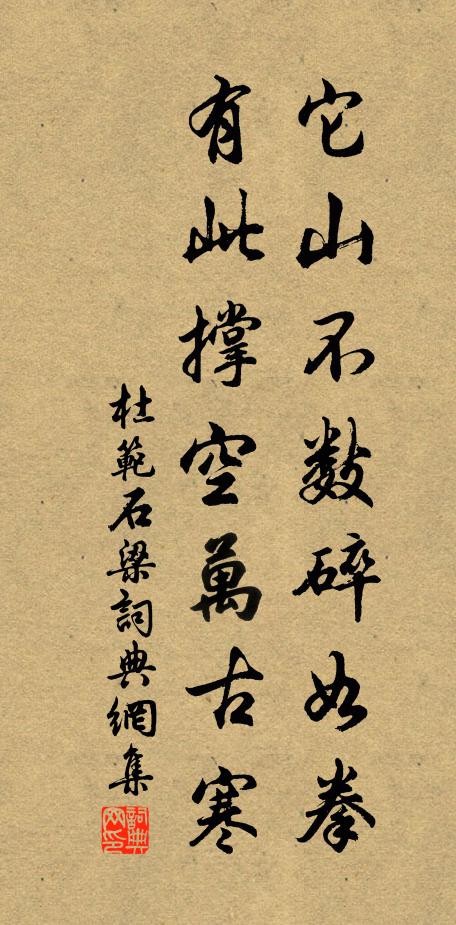 它山不数碎如拳
有此撑空萬古寒
杜範石梁詞典網集
詞典网印